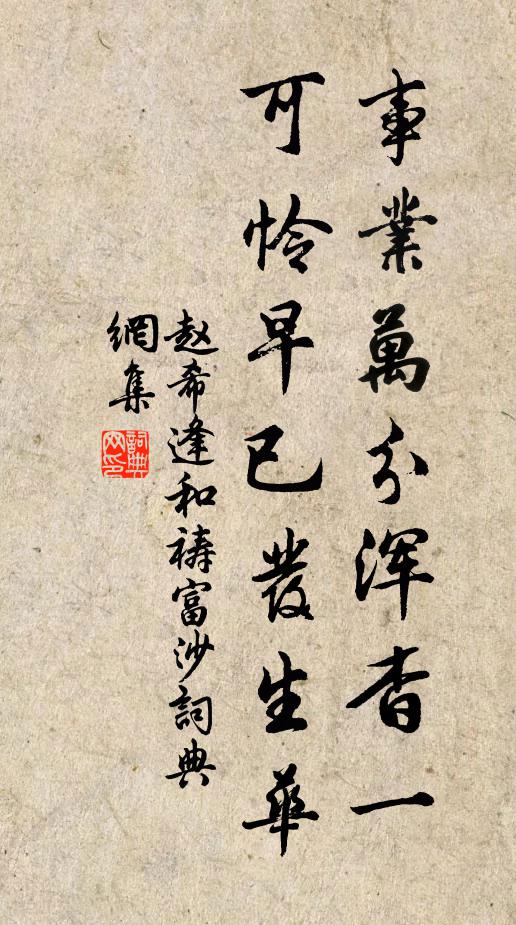 事業萬分渾杳一
可怜早已發生華
赵希逢和禱富沙詞典
網集
詞典網印